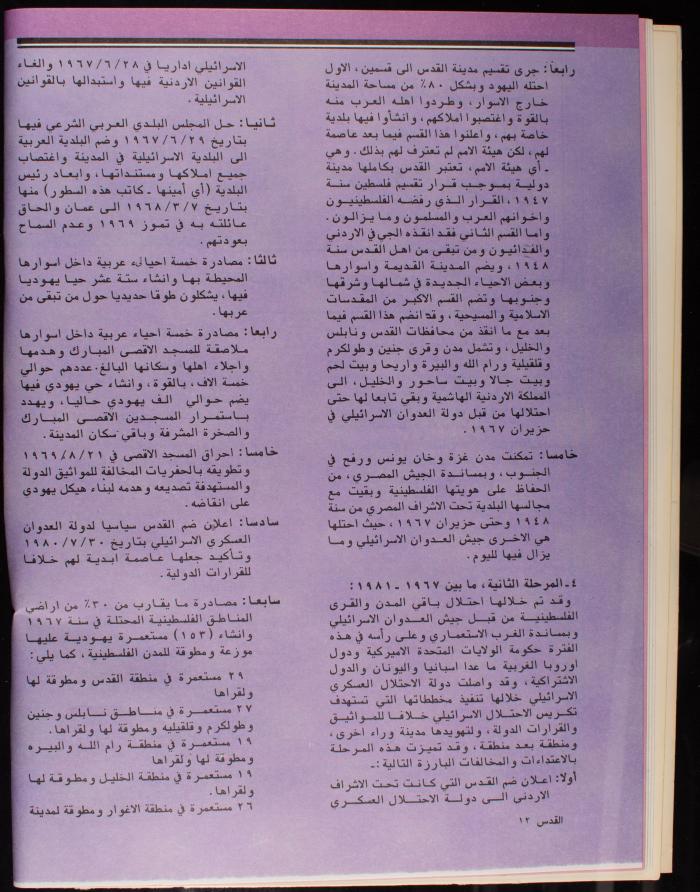 رابعاً: جرى تقسيم مدينة القدس الى قسمين، الاول
احتله اليهود وبشكل ٨٠٪ من مساحة المدينة
خارج الاسوار، وطردوا اهله العرب منه
بالقوة واغتصبوا املاكهم، وانشأوا فيها بلدية
خاصة بهم، واعلنوا هذا القسم فيما بعد عاصمة
لهم، لكن هيئة الامم لم تعترف لهم بذلك. وهي
ـ أي هيئة الامم، تعتبر القدس بكاملها مدينة
دولية بموجب قرار تقسيم فلسطين سنة
١٩٤٧، القرار الذي رفضه الفلسطينيون
واخوانهم العرب والمسلمون وما يزالون.
واما القسم الثاني فقد انقذه الجي في الاردني
والفدائيون ومن تبقى من اهل القدس سنة
١٩٤٨، ويضم المدينة القديمة واسوارها
وبعض الاحياء الجديدة في شمالها وشرقها
وجنوبها وتضم القسم الاكبر من المقدسات
الاسلامية والمسيحية، وقد انضم هذا القسم فيما
بعد مع ما انقذ من محافظات القدس ونابلس
والخليل، وتشمل مدن وقرى جنين وطولكرم
وقلقيلية ورام الله والبيرة واريحا وبيت لحم
وبيت جالا وبيت ساحور والخليل، الى
المملكة الاردنية الهاشمية وبقي تابعا لها حتى
احتلالها من قبل دولة العدوان الاسرائيلي في
حزيران ١٩٦٧.
خامسا: تمكنت مدن غزة وخان يونس ورفح في
الجنوب، وبمساندة الجيش المصري، من
الحفاظ على هويتها الفلسطينية وبقيت مع
مجالسها البلدية تحت الاشراف المصري من سنة
١٩٤٨ وحتى حزيران ١٩٦٧، حيث احتلها
هي الاخرى جيش العدوان الاسرائيلي وما
يزال فيها لليوم.
٤ ـ المرحلة الثانية، ما بين ١٩٦٧ ـ ١٩٨١:
وقد تم خلالها احتلال باقي المدن والقرى
الفلسطينية من قبل جيش العدوان الاسرائيلي
وبمساندة الغرب الاستعماري وعلى رأسه في هذه
الفترة حكومة الولايات المتحدة الاميركية ودول
اوروبا الغربية ما عدا اسبانيا واليونان والدول
الاشتراكية، وقد واصلت دولة الاحتلال العسكري
الاسرائيلي خلالها تنفيذ مخططاتها التي تستهدف
تكريس الاحتلال الاسرائيلي خلافا للمواثيق
والقرارات الدولة، ولتهويدها مدينة وراء اخرى،
ومنطقة بعد منطقة، وقد تميزت هذه المرحلة
بالاعتداءات والمخالفات البارزة التالية:ـ
أولا: اعلان ضم القدس التي كانت تحت الاشراف
الاردني الى دولة الاحتلال العسكري
الاسرائيلي اداريا في ١٩٦٧/٦/٢٨ والغاء
القوانين الاردنية فيها واستبدالها بالقوانين
الاسرائيلية.
ثانيا: حل المجلس البلدي العربي الشرعي فيها
بتاريخ ١٩٦٧/٦/٢٩ وضم البلدية العربية
الى البلدية الاسرائيلية في المدينة واغتصاب
جميع املاكها ومستنداتها، وابعاد رئيس
البلدية (أي أمينها ـ كاتب هذه السطور) منها
بتاريخ ١٩٦٨/٣/٧ الى عمان والحاق
عائلته به في تموز ١٩٦٩ وعدم السماح
بعودتهم.
ثالثا: مصادرة خمسة احياء عربية داخل اسوارها
المحيطة بها وانشاء ستة عشر حيا يهوديا
فيها، يشكلون طوقا حديديا حول من تبقى من
عربها.
رابعا: مصادرة خمسة احياء عربية داخل اسوارها
ملاصقة للمسجد الاقصى المبارك وهدمها
واجلاء اهلها وسكانها البالغ عددهم حوالي
خمسة الاف، بالقوة، وانشاء حي يهودي فيها
يضم حوالي الف يهودي حاليا، ويهدد
باستمرار المسجدين الاقصى المبارك
والصخرة المشرفة وباقي سكان المدينة.
خامسا: احراق المسجد الاقصى في ١٩٦٩/٨/٢١
وتطويقه بالحفريات المخالفة للمواثيق الدولة
والمستهدفة تصديعه وهدمه لبناء هيكل يهودي
على انقاضه.
سادسا: اعلان ضم القدس سياسيا لدولة العدوان
العسكري الاسرائيلي بتاريخ ١٩٨٠/٧/٣٠
وتأكيد جعلها عاصمة ابدية لهم خلافا
للقرارات الدولية.
سابعا: مصادرة ما يقارب من ٣٠٪ من اراضي
المناطق الفلسطينية المحتلة في سنة ١٩٦٧
وانشاء (١٥٣) مستعمرة يهودية عليها
موزعة ومطوقة للمدن الفلسطينية، كما يلي:
٢٩ مستعمرة في منطقة القدس ومطوقة لها
ولقراها
٢٧ مستعمرة في مناطق نابلس وجنين
وطولكرم وقلقيليه ومطوقة لها ولقراها.
١٩ مستعمرة في منطقة رام الله والبيره
ومطوقة لها ولقراها
١٩ مستعمرة في منطقة الخليل ومطوقة لها
ولقراها.
٢٦ مستعمرة في منطقة الاغوار ومطوقة لمدينة
القدس ١٢